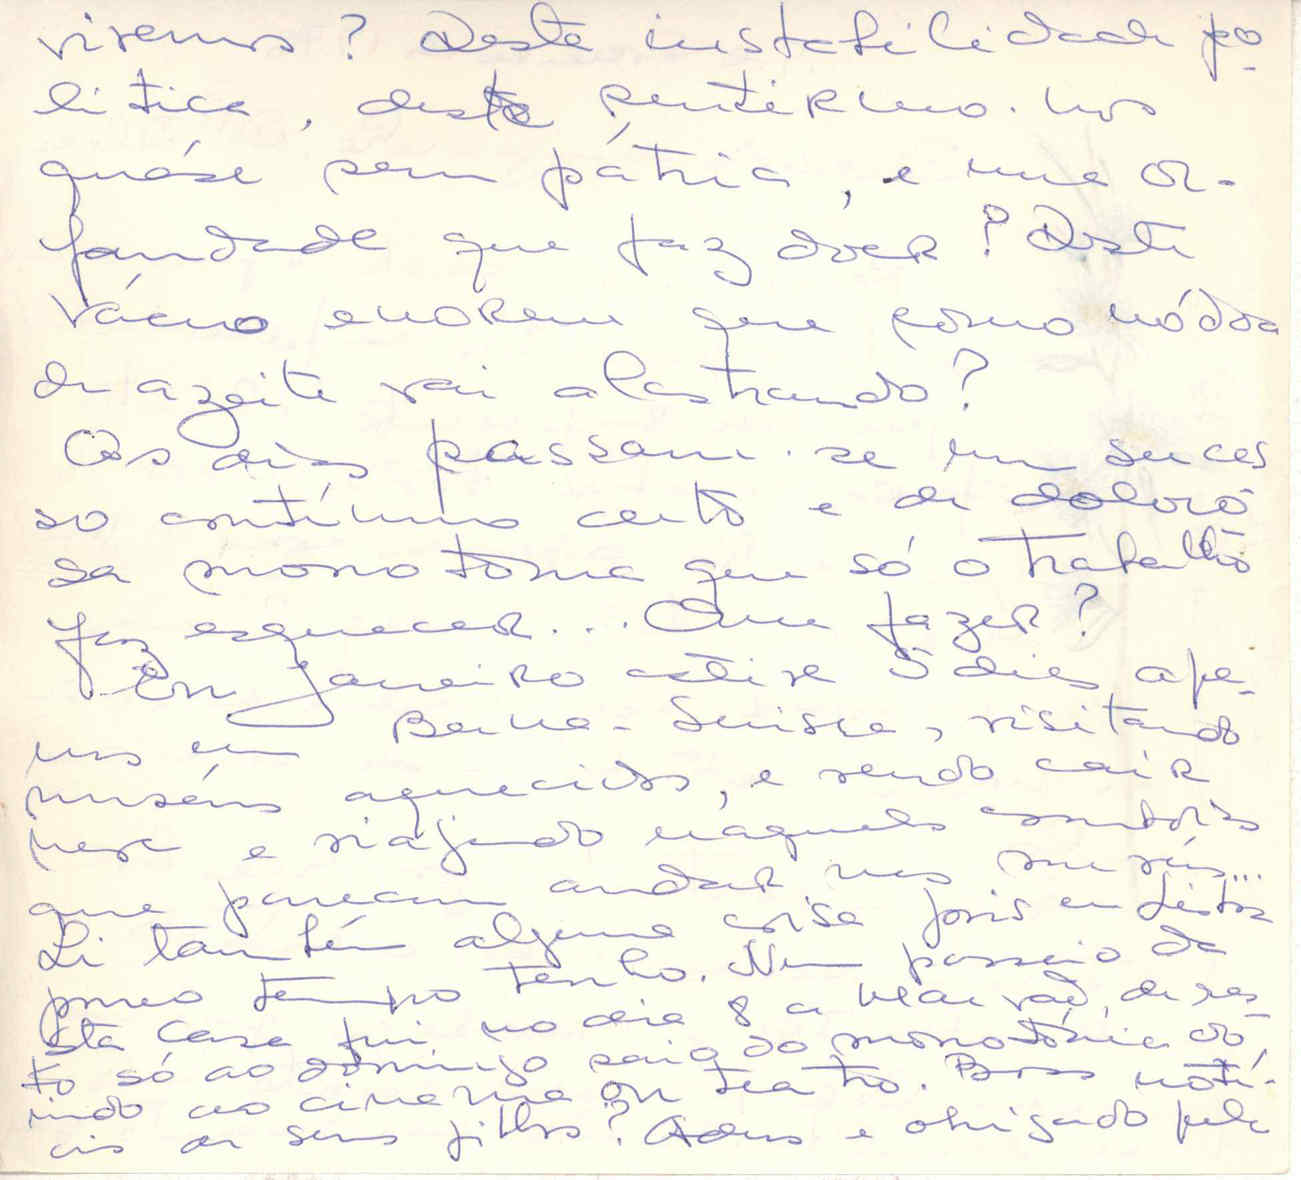 vivemos? Deste instabilidade po-
litica, deste sentirmo-nos
quáse sem pátria, e uma or-
fandade que faz doer? Deste
vácuo enorme que como nódoa
de azeite vai alastrando?
Os dias passam-se em suces
so contínuo certo e de doloro
sa monotonia que só o trabalho
faz esquecer... Que fazer?
Em Janeiro estive 5 dias ape-
nas em Berna-Suissa, visitando
muséus aquecidos, e vendo cair
neve e viajando naqueles comboios
que parecem andar nas nuvens...
Li também alguma coisa pois em Lisboa
pouco tempo tenho. Nem passeio da
Casa fui no dia 8 a, de res-
to só ao domingo saio da monotonia
indo ao cinema ou teatro. Boas notí-
cias de seus filhos? Adeus e obrigado pela